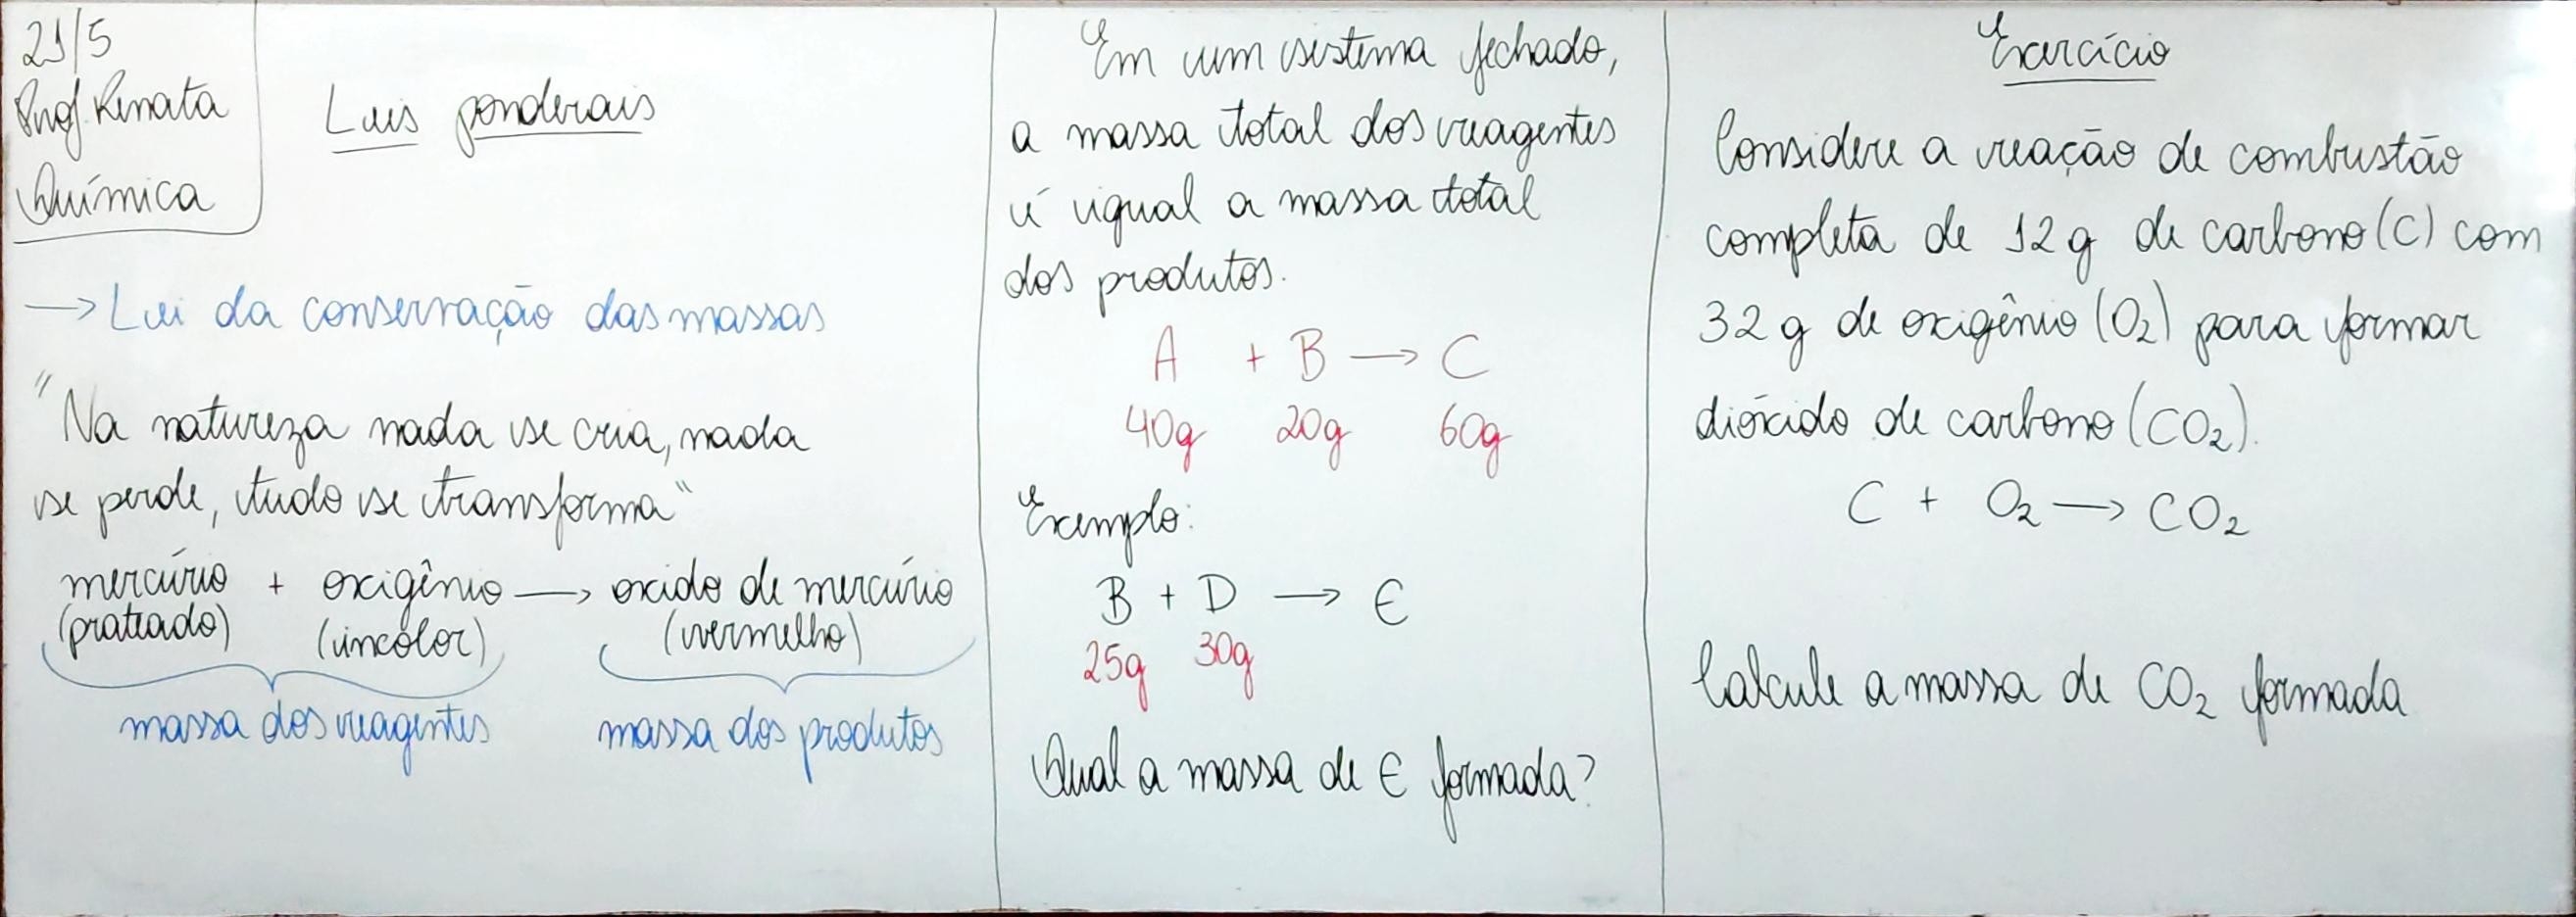 21/5
Prof. Renata
Química
Leis ponderais
→ Lei da conservação das massas
"Na natureza nada se cria, nada
se perde, tudo se transforma"
mercúrio + oxigênio → oxido de mercúrio
(prateado) (incolor) (vermelho)
massa dos reagentes massa dos produtos
Em um sistema fechado,
a massa total dos reagentes
é igual a massa total
dos produtos.
A + B → C
40g 20g 60g
Exemplo:
B + D → E
25g 30g
Qual a massa de E formada?
Exercício
Considere a reação de combustão
completa de 12g de carbono (C) com
32g de oxigênio (O₂) para formar
dióxido de carbono (CO₂).
C + O₂ → CO₂
Calcule a massa de CO₂ formada